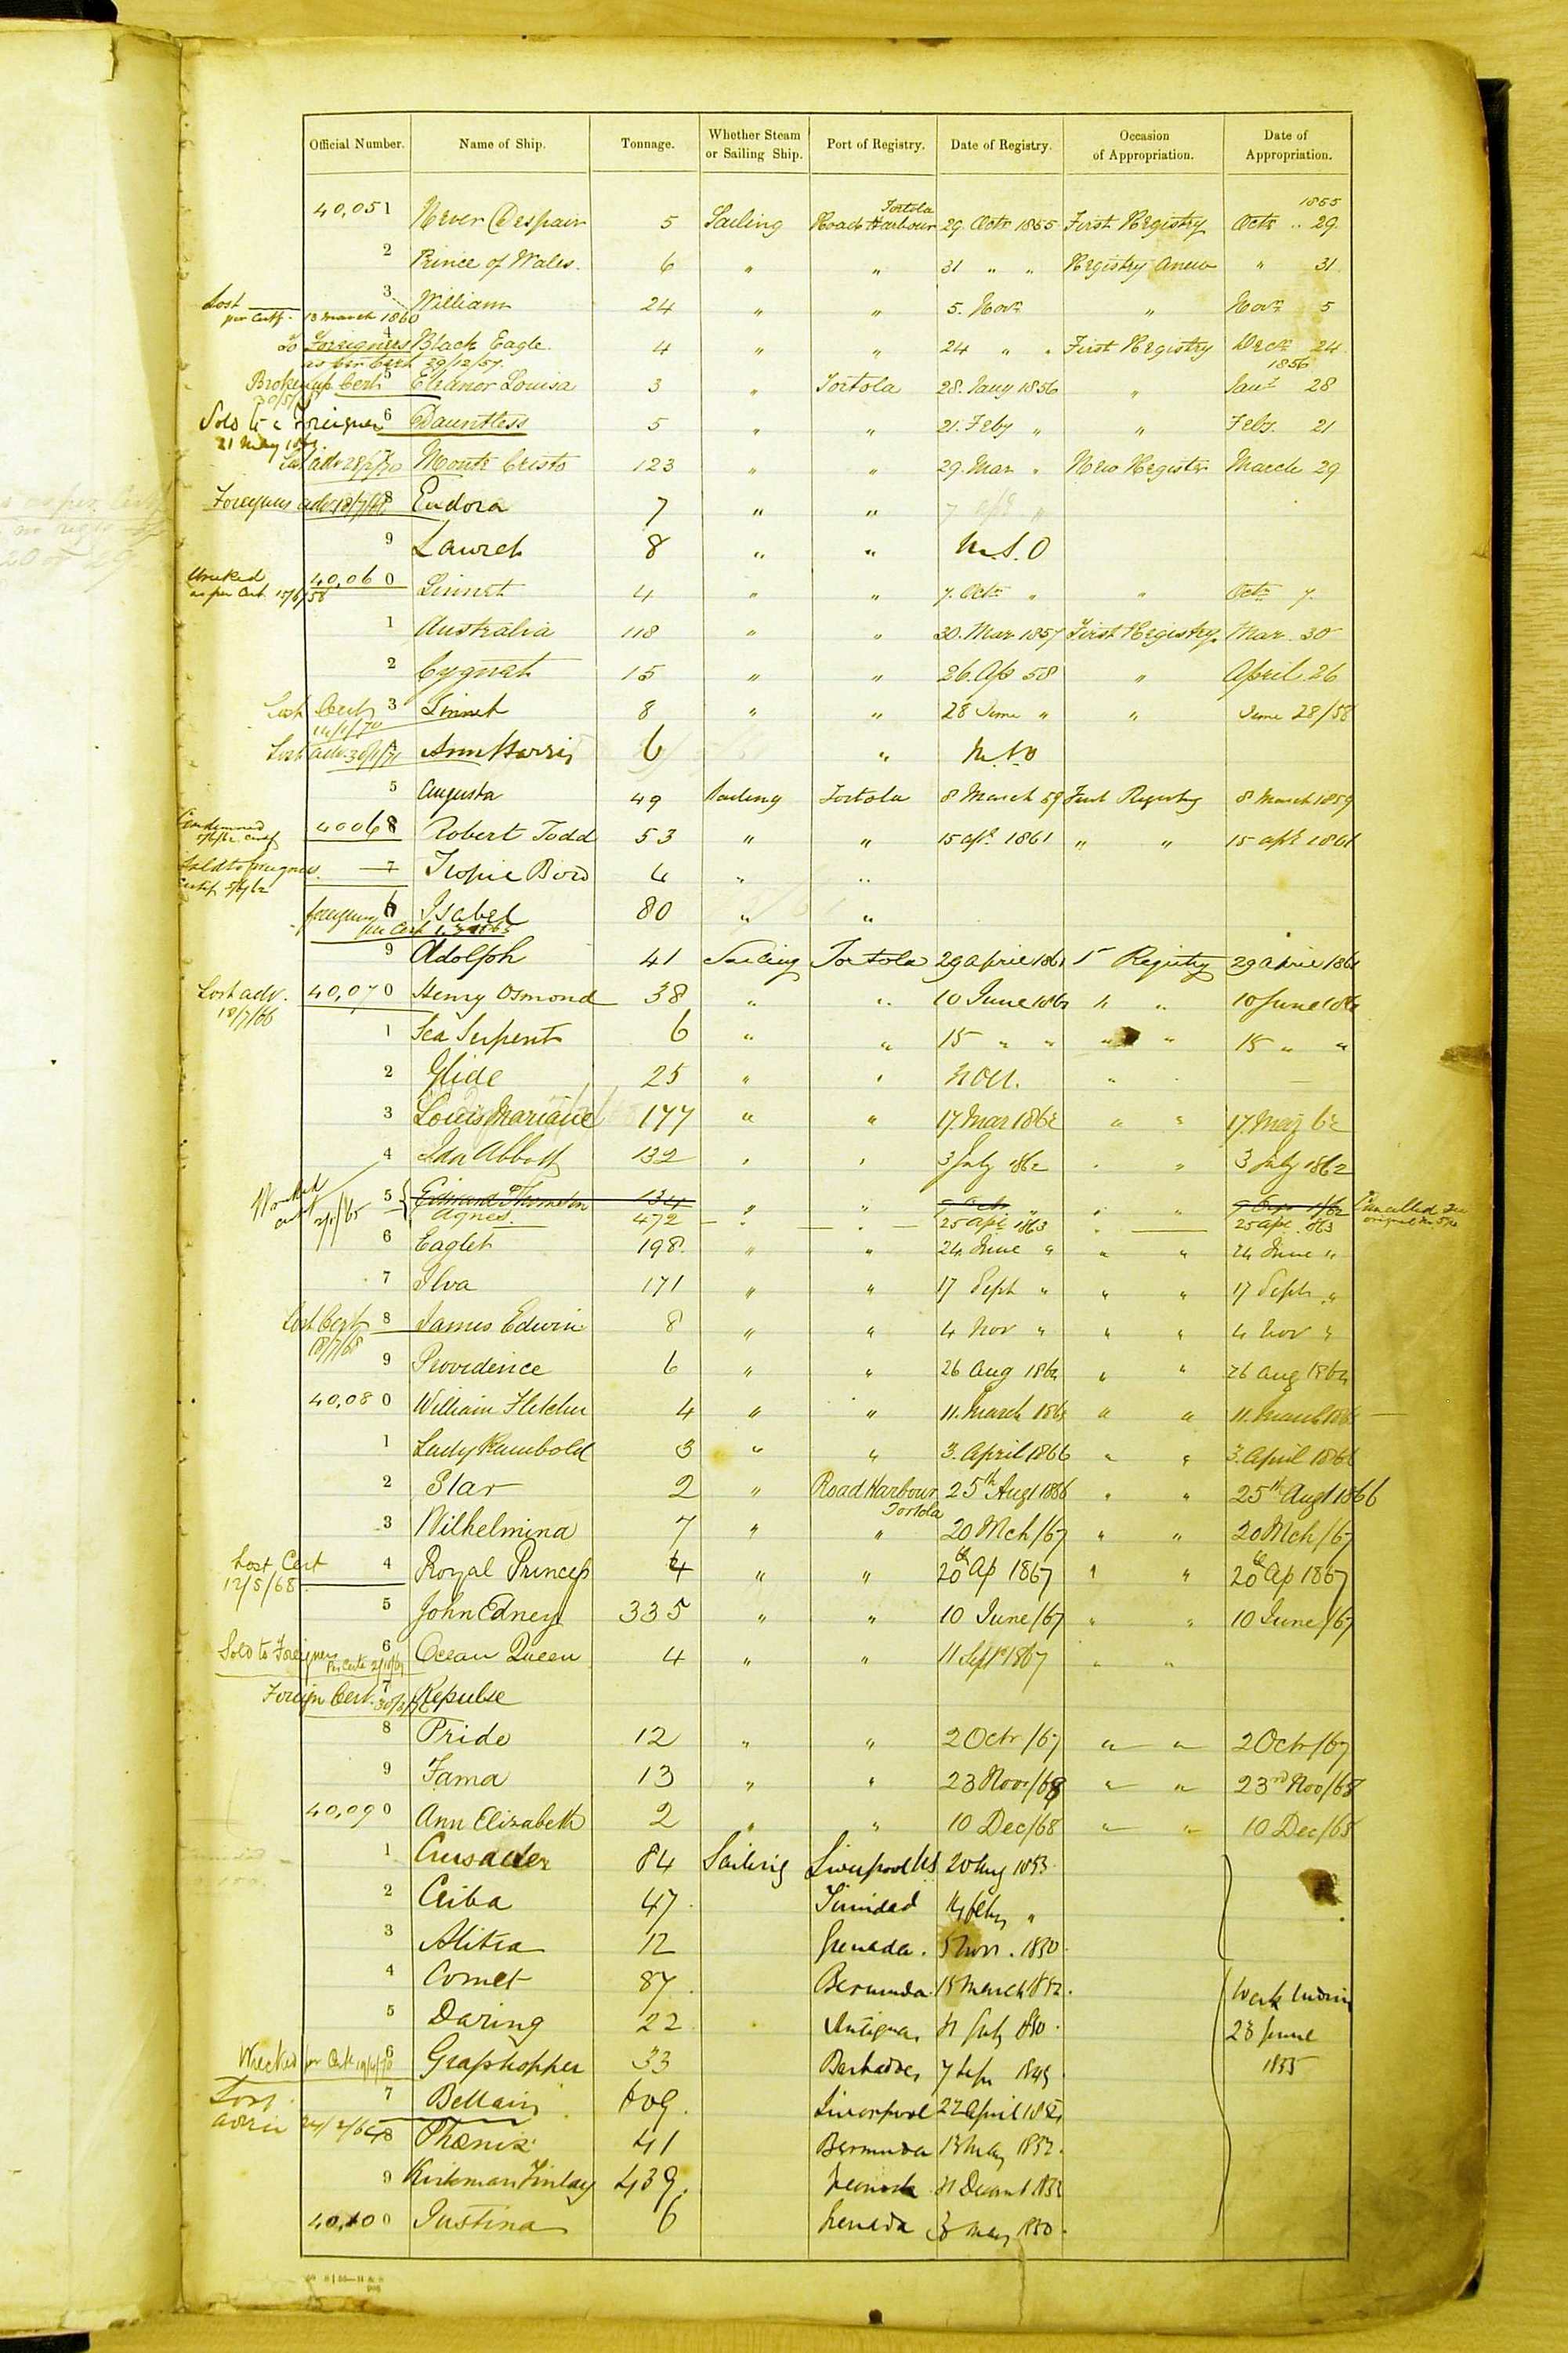 Official Number. Name of Ship. Tonnage. Whether Steam or Sailing Ship. Port of Registry. Date of Registry. Occasion of Appropriation. Date of Appropriation.
40,051 Never Despair 5 Sailing Road Harbour Tortola 29. Octr 1855 First Registry 1855 Octr .. 29.
2 Prince of Wales. 6 " " 31 " " Registry Anew " 31.
Lost per Certf. 13 March 1860 3 William 24 " " 5. Novr " Novr 5
to Foreigners as per Cert 29/12/57. 4 Black Eagle. 4 " " 24 " " First Registry Decr 24
Broken up Cert 5 Eleanor Louisa 3 " Tortola 28. Jany 1856 " 1856 Jany 28
Sold to a Foreigner 21 May 6 Dauntless 5 " " 21. Feby " " Feby. 21
Lost adv 7 Monte Cristo 123 " " 29. Mar " New Register March 29
Foreigners adv 18/7/66 8 Eudora 7 " " 7 apl "
9 Laurel 8 " " N.S.O
Wrecked as per Cert. 40,060 Linnet 4 " " 7. Octr " " Octr 7.
1 Australia 118 " " 30. Mar 1857 First Registry. Mar. 30
2 Cygnet 15 " " 26. Ap 58 " April. 26
Lost Cert 3 Linnet 8 " " 28 June " " June 28/58
Lost adv. 4 Ann Harris 6 "
5 Augusta 49 Sailing Tortola 8 March 59 First Registry 8 March 1859
Condemned 40068 Robert Todd 53 " " 15 apl. 1861 " " 15 apl 1861
Sold to foreigners. Certif 7 Tropic Bird 4 " "
foreigners per Cert 6 Isabel 80 " "
9 Adolph 41 Sailing Tortola 29 April 1861 1st Registry 29 April 1861
Lost adv. 18/7/66 40,070 Henry Osmond 38 " " 10 June 1861 " " 10 June 1861
1 Sea Serpent 6 " " 15 " " " " 15 " "
2 Glide 25 " " "
3 Louis Mariane 177 " " 17. Mar 1862 " " 17. Mar 62
4 Ida Abbott 132 " " 3 July 1862 " " 3 July 1862
5 Edward Thornton 134 " " " " Cancelled
Agnes. 472 25 Apl 1863 25 Apl. 1863
6 Eaglet 198. " " 24 June " " " 24 June "
7 Ilva 171 " " 17 Sept " " " 17 Sept "
Lost Cert 18/7/68 8 James Edwin 8 " " 4 Nov " " " 4 Nov "
9 Providence 6 " " 26 Aug 1864 " " 26 Aug 1864
40,080 William Fletcher 4 " " 11. March 1865 " " 11. March 1865
1 Lady Rumbold 3 " " 3. April 1866 " " 3. April 1866
2 Star 2 " Road Harbour Tortola 25th Augt 1866 " " 25th Augt 1866
3 Wilhelmina 7 " " 20 Mch/67 " " 20 Mch/67
Lost Cert 12/5/68 4 Royal Princess 4 " " 20th Ap 1867 " " 20th Ap 1867
5 John Edney 335 " " 10 June/67 " " 10 June/67
Sold to Foreigners Per Certe 6 Ocean Queen 4 " " 11 Septr 1867 " "
Foreign Cert. 7 Repulse
8 Pride 12 " " 2 Octr/67 " " 2 Octr/67
9 Fama 13 " " 23 Novr/68 " " 23rd Nov/68
40,090 Ann Elizabeth 2 " " 10 Dec/68 " " 10 Dec/68
1 Crusader 84 Sailing Liverpool NS 20 Aug 1853
2 Ceiba 47. Trinidad 14 feby "
3 Alitea 12 Grenada. 5 Nov. 1850.
4 Comet 87. Bermuda. 15 March 1852.
5 Daring 22 Antigua, July 1850. West Indies 28 June 1855
Wrecked per Cert 6 Grasshopper 33 Barbados, 7 Sepr 1849.
Lost advice 7 Bellair 409. Liverpool 22 April
8 Phoenix 41 Bermuda 13 May 1852.
9 Kirkman Finlay 439. Greenock 31 Decemb 1853
40,100 Justina 6 Grenada 8 May 1850.